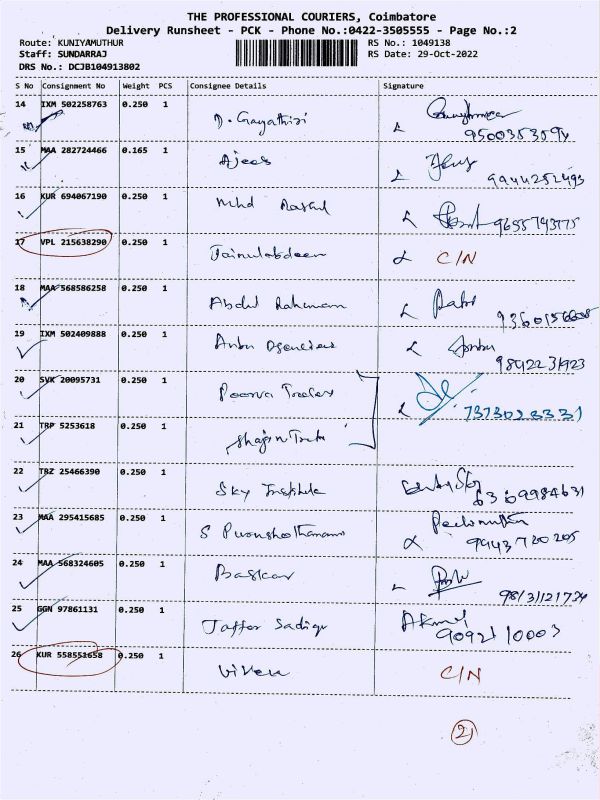 THE PROFESSIONAL COURIERS, Coimbatore
Delivery Runsheet - PCK - Phone No.:0422-3505555 - Page No.:2
Route: KUNIYAMUTHUR RS No.: 1049138
Staff: SUNDARRAJ RS Date: 29-Oct-2022
DRS No.: DCJB104913802
S No Consignment No Weight PCS Consignee Details Signature
14 IXM 502258763 0.250 1
D. Gayathiri
9500353594
15 MAA 282724466 0.165 1
Ajees
9944252493
16 KUR 694067190 0.250 1
Mhd Rasul
9655743775
17 VPL 215638290 0.250 1
Jainulabdeen C/N
18 MAA 568586258 0.250 1
Abdul Rahman
19 IXM 502409888 0.250 1
Anbu Agencies
9842231923
20 SVK 20095731 0.250 1
Poorva Traders
7373023331
21 TRP 5253618 0.250 1
22 TRZ 25466390 0.250 1
Sky Institute
6369984631
23 MAA 295415685 0.250 1
S Purushothaman
9443720205
24 MAA 568324605 0.250 1
Baskar
25 GGN 97861131 0.250 1
Jaffar Sadiq Akmal
9092110003
26 KUR 558551658 0.250 1
C/N
2